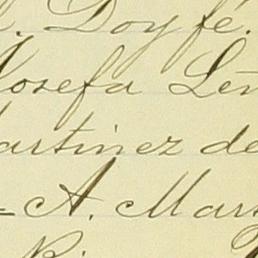 . Doy fé.
Josefa Len
artinez de
- A. Mar